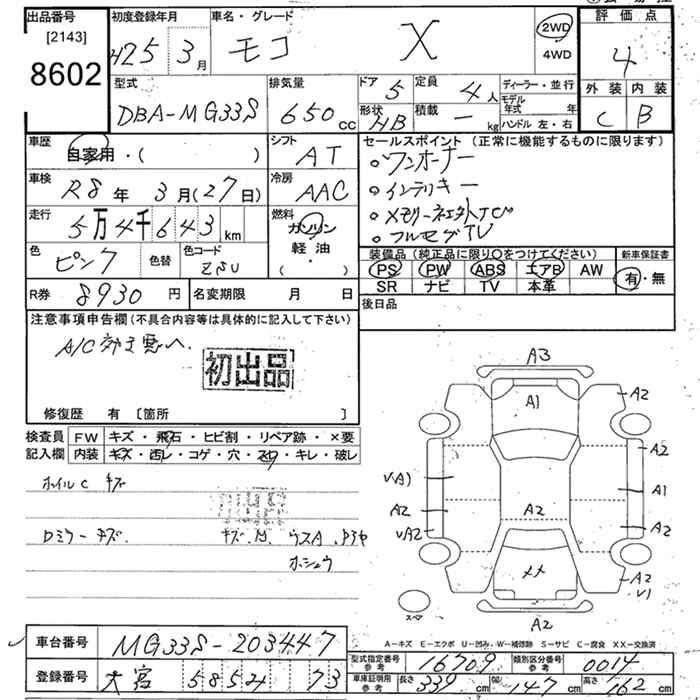 出品番号 初度登録年月 車名・グレード 評価点
[2143]
8602 H25 3月 モコ X 2WD 4WD 4
型式 排気量 ドア 5 定員 4人 ディーラー・並行 外装 内装
DBA-MG33S 650cc 形状 HB 積載 - kg モデル年式 年 C B
ハンドル 左・右
車歴 自家用・( ) シフト AT セールスポイント (正常に機能するものに限ります)
・ワンオーナー
車検 R8年 3月(27日) 冷房 AAC ・インテリキー
走行 5万4千643km 燃料 ガソリン 軽油 ( )
・フルセグTV
色 ピンク 色替 色コード
装備品(純正品に限り○をつけてください) 新車保証書
PS PW ABS エアB AW 有・無
SR ナビ TV 本革
R券 8930円 名変期限 月 日 後日品
注意事項申告欄(不具合内容等は具体的に記入して下さい)
A/C 効き悪い
初出品
修復歴 有 〔箇所 〕
検査員 FW キズ・飛石・ヒビ割・リペア跡・×要
記入欄 内装 キズ・凹レ・コゲ・穴・ キレ・破レ
ホイルC キズ
ロミラーキズ
ホシュウ
A3
A1
A2 A2
A2
VA1 A1
A2 A2 A2
VA2
XX
A2
V1
スペア
A2
A-キズ E-エクボ U-凹み W-補修跡 S-サビ C-腐食 XX-交換済
車台番号 MG33S-203447
型式指定番号 参考 16709 類別区分番号 参考 0014
登録番号 大宮 585 73
車庫証明用 参考 長さ 339cm 幅 147cm 高さ 162cm